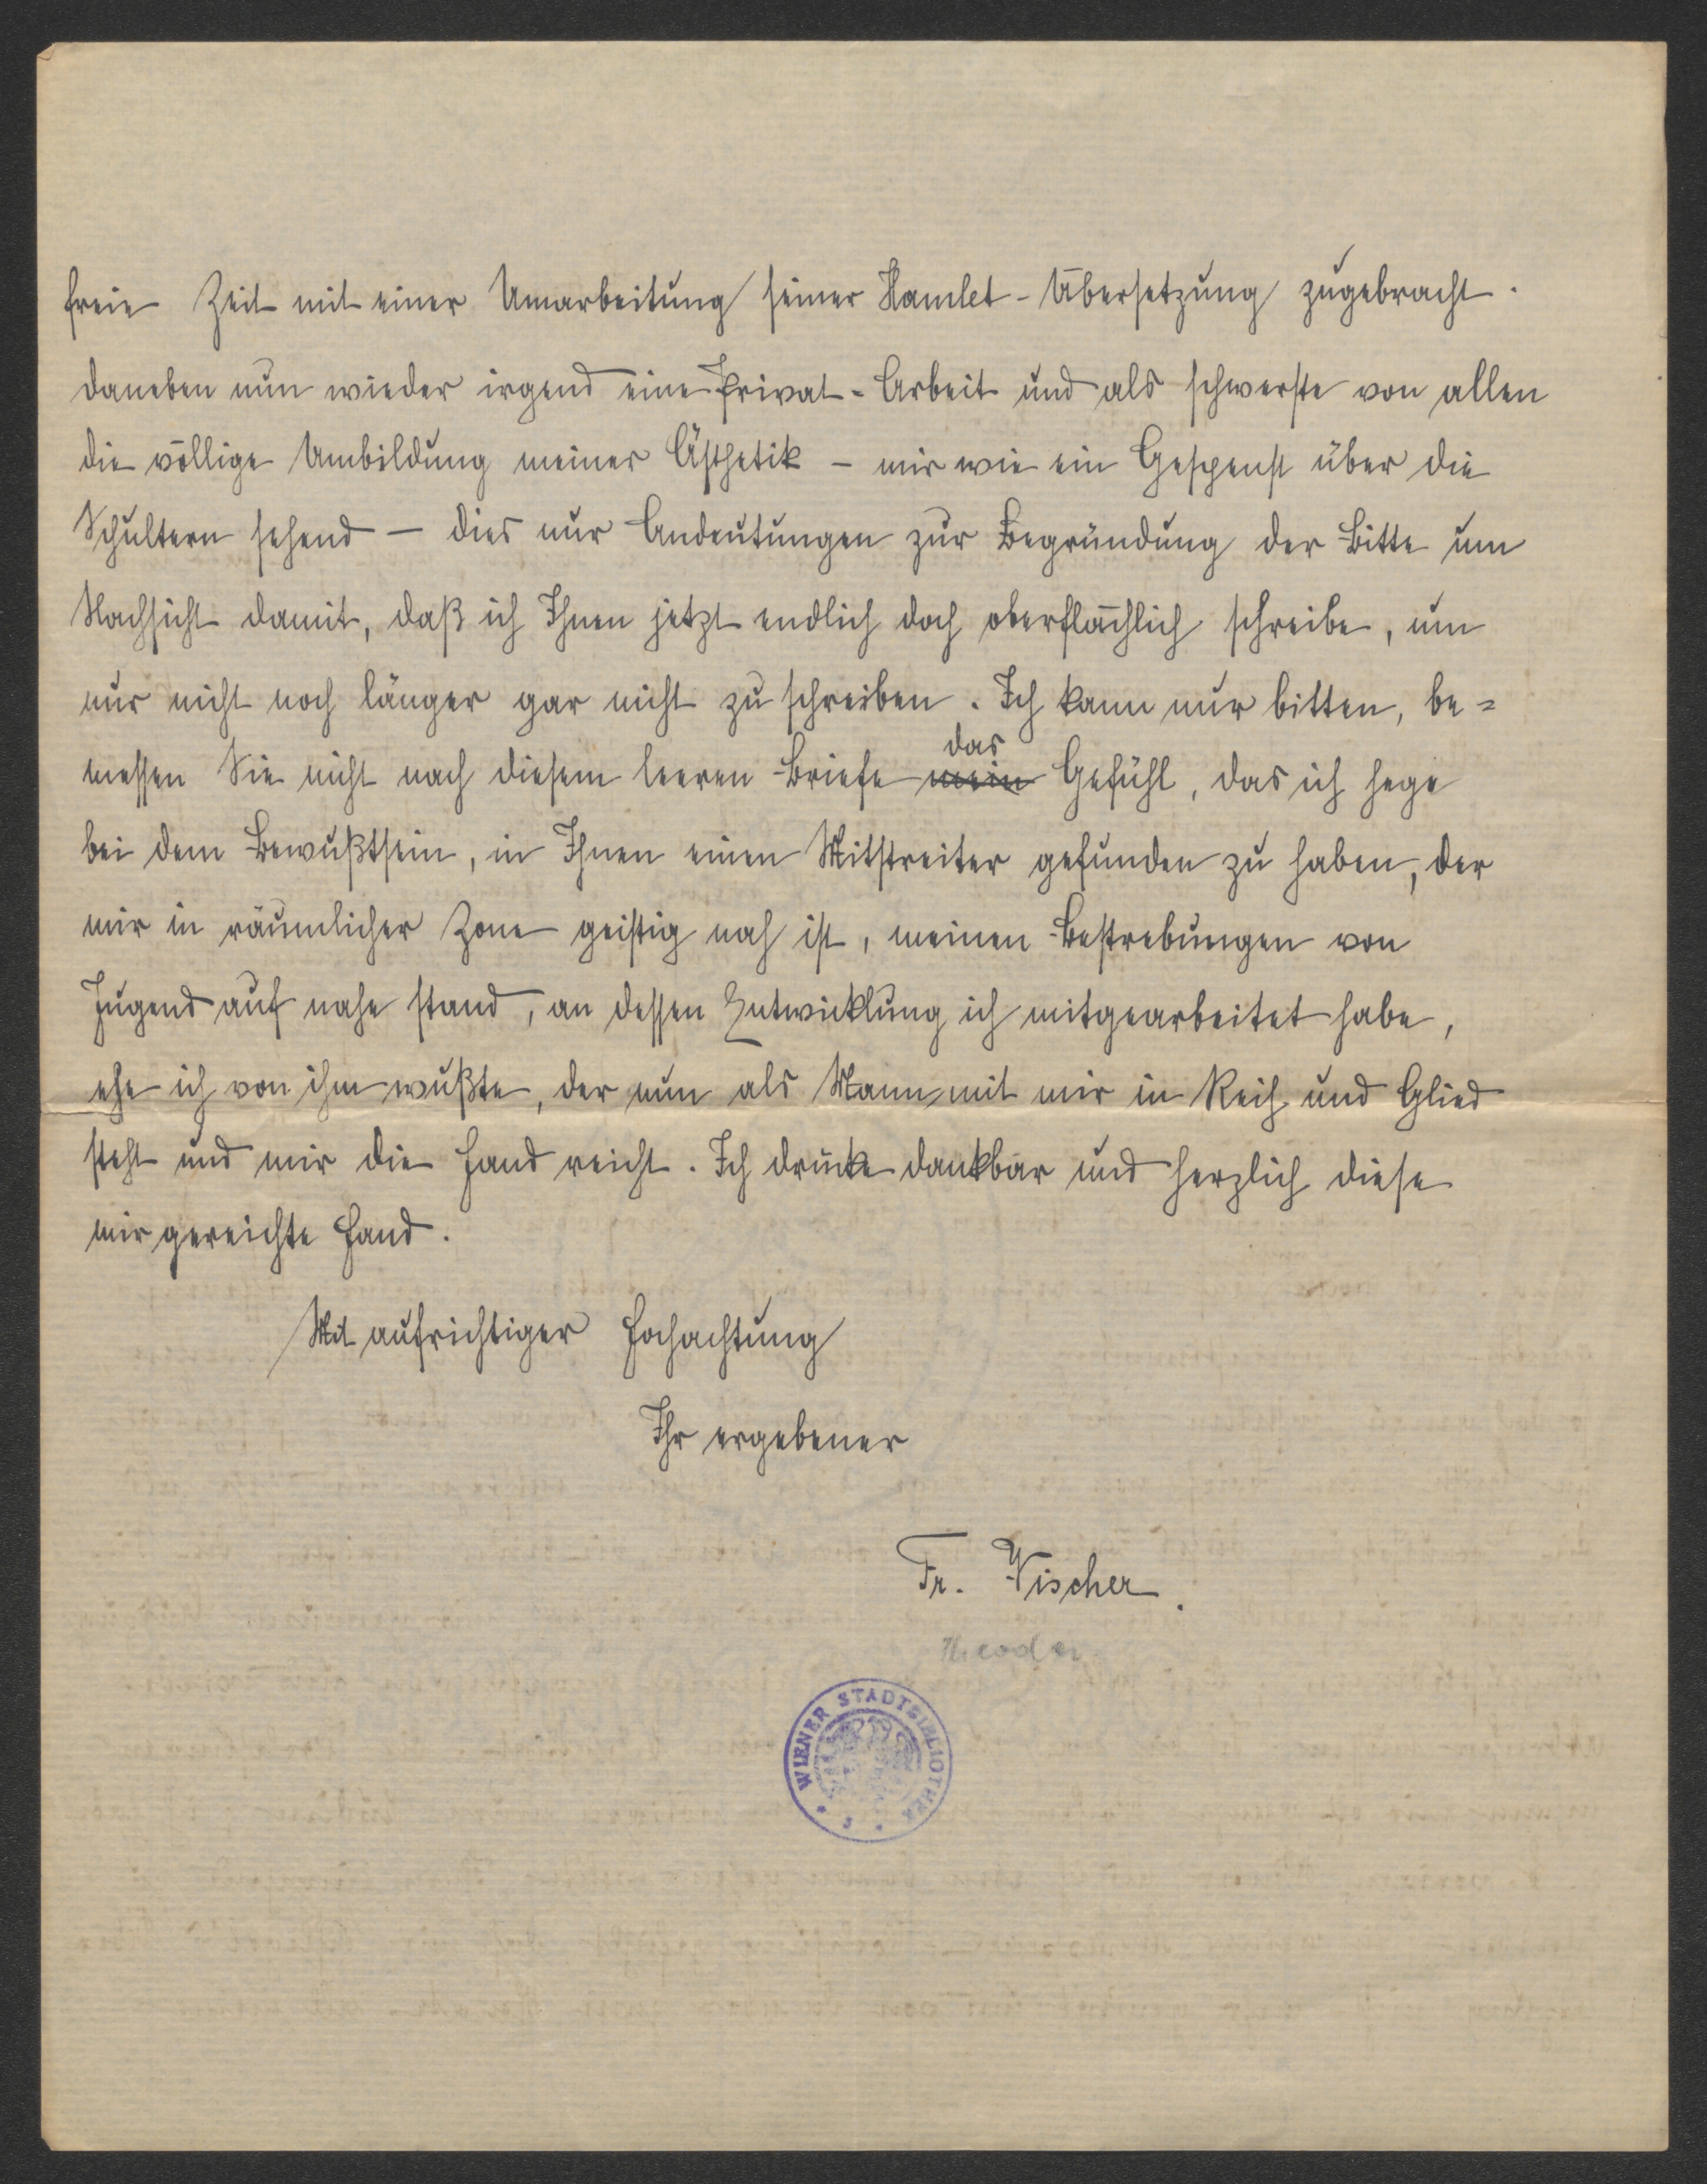 freie Zeit mit einer Umarbeitung seiner Hamlet-Übersetzung zugebracht.
daneben nun wieder irgend eine Privat-Arbeit und als schwerste von allen
die völlige Umbildung meiner Ästhetik – mir wie ein Gespenst über die
Schultern sehend – dies nur Andeutungen zur Begründung der Bitte um
Nachsicht damit, daß ich Ihnen jetzt endlich doch oberflächlich schreibe, um
nur nicht noch länger gar nicht zu schreiben. Ich kann nur bitten, be=
das
messen Sie nicht nach diesem leeren Briefe mein Gefühl, das ich hege
bei dem Bewußtsein, in Ihnen einen Mitstreiter gefunden zu haben, der
mir in räumlicher Zone geistig nah ist, meinen Bestrebungen von
Jugend auf nahe stand, an dessen Entwicklung ich mitgearbeitet habe,
ehe ich von ihm wußte, der nun als Mann mit mir in Reih und Glied
steht und mir die Hand reicht. Ich drücke dankbar und herzlich diese
mir gereichte Hand.
Mit aufrichtiger Hochachtung
Ihr ergebener
Fr. Vischer.
Theodor
WIENER STADTBIBLIOTHEK